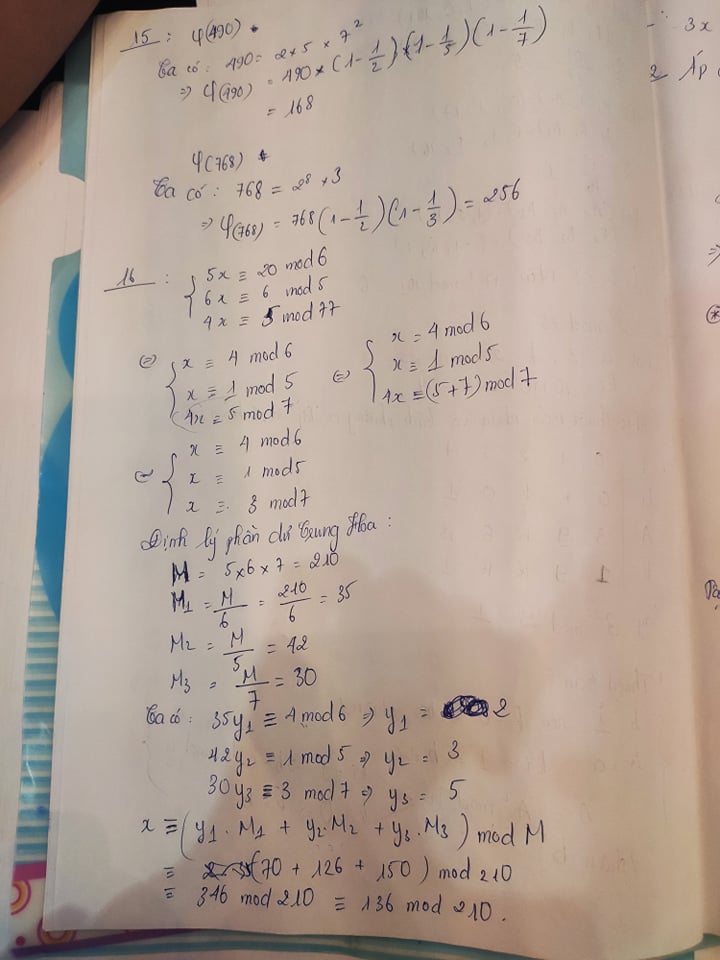 15 : φ(490)
Ta có : 490 = 2 × 5 × 7²
⇒ φ(490) = 490 × (1 - 1/2) (1 - 1/5) (1 - 1/7)
= 168
φ(768)
Ta có : 768 = 2⁸ × 3
⇒ φ(768) = 768 (1 - 1/2) (1 - 1/3) = 256
16 : { 5x ≡ 20 mod 6
6x ≡ 6 mod 5
4x ≡ 5 mod 77
⇔ { x ≡ 4 mod 6
x ≡ 1 mod 5
4x ≡ 5 mod 7
⇔ { x = 4 mod 6
x ≡ 1 mod 5
4x ≡ (5+7) mod 7
⇔ { x ≡ 4 mod 6
x ≡ 1 mod 5
x ≡ 3 mod 7
Định lý phần dư Trung Hoa :
M = 5 × 6 × 7 = 210
M1 = M/6 = 210/6 = 35
M2 = M/5 = 42
M3 = M/7 = 30
Ta có : 35y1 ≡ 4 mod 6 ⇒ y1 = 2
42y2 ≡ 1 mod 5 ⇒ y2 = 3
30y3 ≡ 3 mod 7 ⇒ y3 = 5
x ≡ (y1 . M1 + y2 . M2 + y3 . M3) mod M
≡ (70 + 126 + 150) mod 210
≡ 346 mod 210 ≡ 136 mod 210.
3x
2 Áp